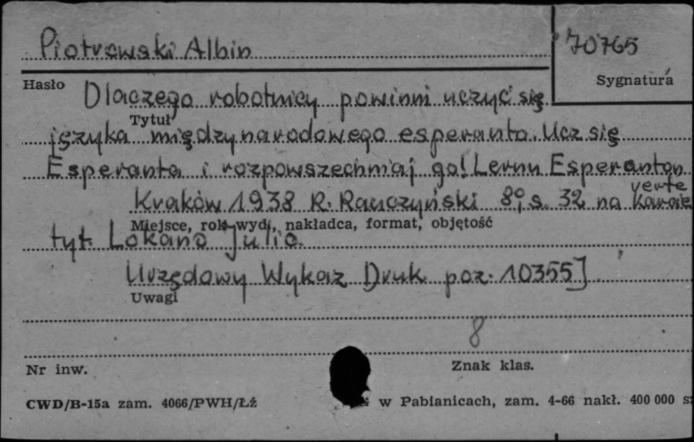 Piotrowski Albin
70765
Sygnatura
Hasło
Dlaczego robotnicy powinni uczyć się
Tytuł
języka międzynarodowego esperanto. Ucz się
Esperanta i rozpowszechniaj go! Lernu Esperanton
verte
Kraków 1938 R. Rauczyński 8°, s. 32 na
Miejsce, rok wyd., nakładca, format, objętość
tyt. Lokano Julio.
Urzędowy Wykaz Druk poz. 10355]
Uwagi
8
Nr inw.
Znak klas.
CWD/B-15a zam. 4066/PWH/Łź
w Pabianicach, zam. 4-66 nakł. 400 000